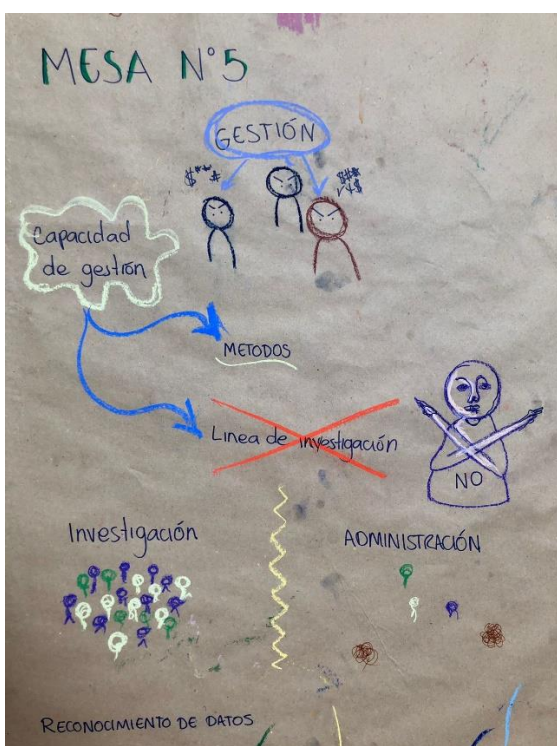 MESA N°5
GESTIÓN
$**
*
$**
√4$
Capacidad
de gestión
METODOS
Linea de investigación
NO
Investigación
ADMINISTRACIÓN
RECONOCIMIENTO DE DATOS